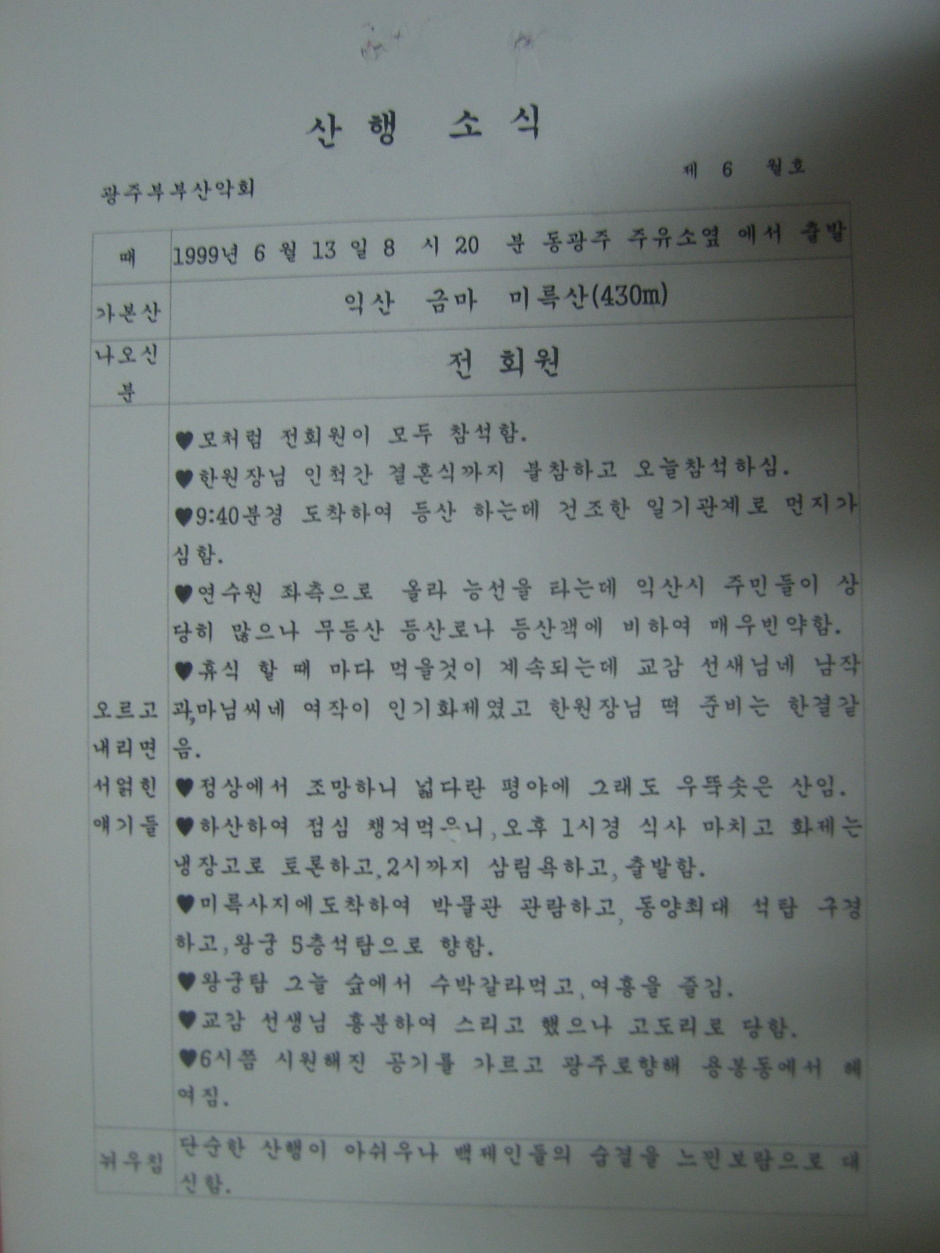 산 행 소 식
광주부부산악회 제 6 월호
때 1999년 6 월 13 일 8 시 20 분 동광주 주유소옆 에서 출발
가본산 익산 금마 미륵산(430m)
나오신
분
전 회원
♥모처럼 전회원이 모두 참석함.
♥한원장님 인척간 결혼식까지 불참하고 오늘참석하심.
♥9:40분경 도착하여 등산 하는데 건조한 일기관계로 먼지가
심함.
♥연수원 좌측으로 올라 능선을 타는데 익산시 주민들이 상
당히 많으나 무등산 등산로나 등산객에 비하여 매우빈약함.
♥휴식 할 때 마다 먹을것이 계속되는데 교감 선새님네 남작
오르고 과,마님씨네 여작이 인기화제였고 한원장님 떡 준비는 한결같
내리면 음.
서얽힌 ♥정상에서 조망하니 넓다란 평야에 그래도 우뚝솟은 산임.
얘기들 ♥하산하여 점심 챙겨먹으니,오후 1시경 식사 마치고 화제는
냉장고로 토론하고,2시까지 삼림욕하고, 출발함.
♥미륵사지에도착하여 박물관 관람하고, 동양최대 석탑 구경
하고,왕궁 5층석탑으로 향함.
♥왕궁탑 그늘 숲에서 수박갈라먹고,여흥을 즐김.
♥교감 선생님 흥분하여 스리고 했으나 고도리로 당함.
♥6시쯤 시원해진 공기를 가르고 광주로향해 용봉동에서 헤
여짐.
뉘우침 단순한 산행이 아쉬우나 백제인들의 숨결을 느낀보람으로 대
신함.